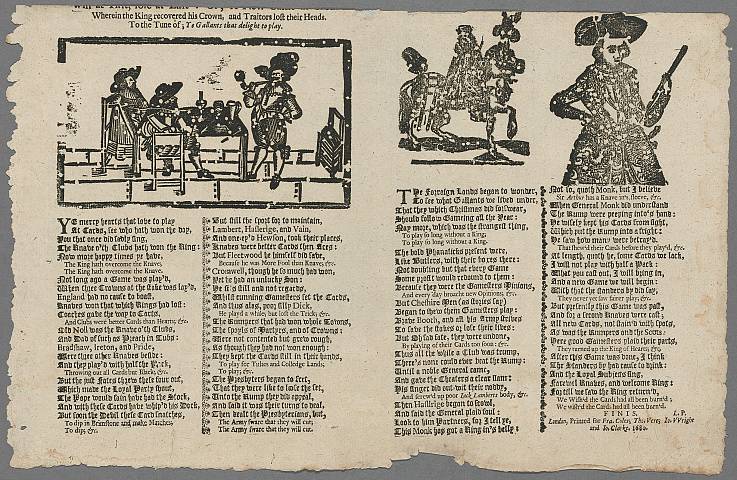 Wherein the King recovered his Crown, and Traitors lost their Heads.
To the Tune of; To Gallants that delight to play.
YE mercy hearts that love to play
At Cards, see who hath won the day,
You that once did sadly sing,
The Knave o'th Clubs hath won the King:
Now more happy times ye have,
The King hath overcome the Knave,
The King hath overcome the Knave.
Not long ago a Game was play'd,
When three Crowns at the stake was lay'd,
England had no cause to boast,
Knaves won that which Kings had lost:
Coaches gave the way to Carts,
And Clubs were better Cards than Hearts; &c.
Old Noll was the Knave o'th Clubs,
And Dad of such as Preach in Tubs:
Bradshaw, Ireton, and Pride,
Were three other Knaves beside:
And they play'd with half the Pack,
Throwing out all Cards but Black, &c.
But the just Fates threw these four out,
Which made the Loyal Party shout,
The Pope would fain have had the Stock,
And with these Cards have whip'd his Dock,
But soon the Devil these Cards snatches
To dip in Brimstone and make Matches,
To dip, &c.
But still the sport for to maintain,
Lambert, Haslerige, and Vain,
And one-ey'd Hewson, took their places,
Knaves were better Cards then Aces:
But Fleetwood he himself did save,
Because he was More Fool than Knave, &c.
Cromwell, though he so much had won,
Yet he had an unlucky Son:
He sits still and not regards,
Whilst cunning Gamesters set the Cards,
And thus alas, poor silly Dick,
He play'd a while, but lost the Trick; &c.
The Rumpers that had won whole Towns,
The spoyls of Martyrs, and of Crowns
Were not contented but grew rough,
As though they had not won enough:
They kept the Cards still in their hands,
To play for Tithes and Colledge Lands,
To play, &c.
The Presbyters began to fret,
That they were like to lose the set,
Unto the Rump they did appeal,
And said it was their turns to deal,
Then dealt the Presbyterians, but,
The Army sware that they will cut;
The Army sware that they will cut.
THe Forreign Lands began to wonder,
To see what Gallants we lived under,
That they which Christmas did forswear,
Should follow Gameing all the year:
Nay more, which was the strangest thing,
To play so long without a King,
To play so long without a King.
The bold Phanaticks present were,
Like Butlers, with their boxes there:
Not doubting but that every Game
Some profit would redound to them:
Because they were the Gamesters Minions,
And every day broacht new Opinions, &c.
But Cheshire Men (as stories say)
Began to shew them Gamesters play:
Brave Booth, and all his Army strives
To save the stakes or lose their lives:
But Oh sad fate, they were undone,
By playing of their Cards too soon; &c.
Thus all the while a Club was trump,
There's none could ever beat the Rump:
Until a noble General came,
And gave the Cheaters a clear slam:
His finger did out-wit their noddy,
And screw'd up poor Jack Lamberts body, &c.
Then Haslerige began to scowl,
And said the General plaid foul:
Look to him Partners, for I tell ye,
This Monck has got a King in's belly:
Not so, quoth Monk, but I believe
Sir Arthur has a Knave in's sleeve, &c.
When General Monk did understand
The Rump were peeping into's hand:
He wisely kept his Cards from sight,
Which put the Rump into a fright:
He saw how many were betray'd
That shew'd their Cards before they play'd, &c.
At length, quoth he, some Cards we lack,
I will not play with half a Pack:
What you cast out, I will bring in,
And a new Game we will begin:
With that the standers by did say,
They never yet saw fairer play; &c.
But presently this Game was past,
And for a second Knaves were cast;
All new Cards, not stain'd with spots,
As was the Rumpers and the Scots:
Here good Gamesters plaid their parts,
They turned up the King of Hearts; &c.
After this Game was done, I think
The Standers by had cause to drink:
And the Loyal Subjects sing,
Farewel Knaves, and welcome King:
For till we saw the King return'd,
We Wisht the Cards had all been burn'd;
We wisht the Cards had all been burn'd.
FINIS. L. P.
London, Printed for Fra. Coles, Tho. Vere, Jo. Wright
and Jo. Clarke,